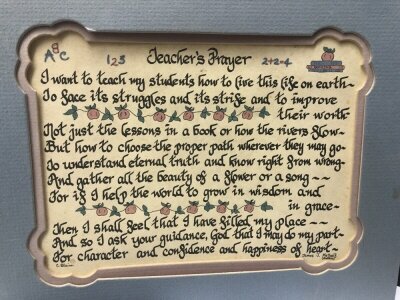 ABC 123 Teacher's Prayer 2+2=4
I want to teach my students how to live this life on earth~
To face its struggles and its strife and to improve
their worth~
Not just the lessons in a book or how the rivers flow~
But how to choose the proper path wherever they may go~
To understand eternal truth and know right from wrong~
And gather all the beauty of a flower or a song~~
For if I help the world to grow in wisdom and
in grace~
Then I shall feel that I have filled my place~~
And so I ask your guidance, God that I may do my part~
For character and confidence and happiness of heart~
James J. Metcalf